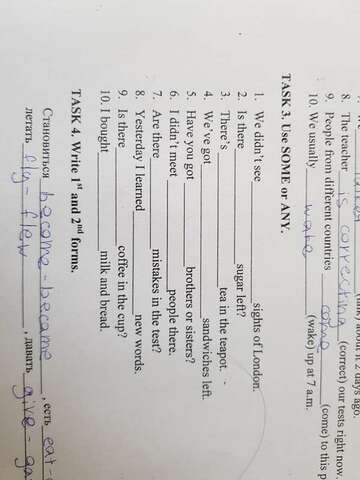 (think) about it 2 days ago.
8. The teacher is correcting (correct) our tests right now.
9. People from different countries come (come) to this p
10. We usually wake (wake) up at 7 a.m.
TASK 3. Use SOME or ANY.
1. We didn't see ____________ sights of London.
2. Is there ____________ sugar left?
3. There's ____________ tea in the teapot.
4. We've got ____________ sandwiches left.
5. Have you got ____________ brothers or sisters?
6. I didn't meet ____________ people there.
7. Are there ____________ mistakes in the test?
8. Yesterday I learned ____________ new words.
9. Is there ____________ coffee in the cup?
10. I bought ____________ milk and bread.
TASK 4. Write 1st and 2nd forms.
Становиться become - became, есть eat -
летать fly - flew, давать give - ga